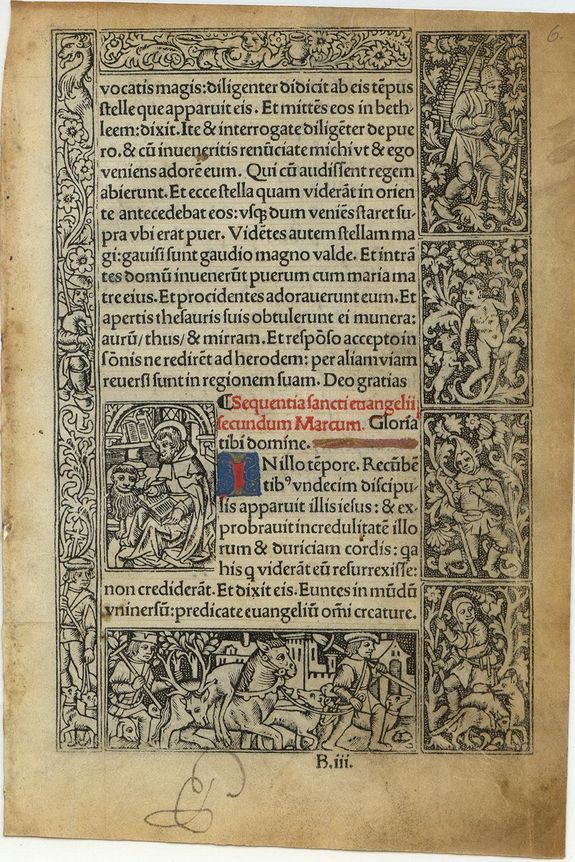 6.
vocatis magis: diligenter didicit ab eis tēpus
stelle que apparuit eis. Et mittēs eos in beth-
leem: dixit. Ite & interrogate diligēter de pue
ro. & cū inueneritis renūciate michi vt & ego
veniens adorē eum. Qui cū audissent regem
abierunt. Et ecce stella quam viderāt in orien
te antecedebat eos: vsqꝫ dum veniēs staret su-
pra vbi erat puer. Vidētes autem stellam ma
gi: gauisi sunt gaudio magno valde. Et intrā
tes domū inuenerūt puerum cum maria ma
tre eius. Et procidentes adorauerunt eum. Et
apertis thesauris suis obtulerunt ei munera:
aurū/ thus/ & mirram. Et respōso accepto in
sōnis ne redirēt ad herodem: per aliam viam
reuersi sunt in regionem suam. Deo gratias
¶Sequentia sancti euangelii
secundum Marcum. Gloria
tibi domine.
INillo tēpore. Recūbē
tibꝰ vndecim discipu-
lis apparuit illis iesus: & ex-
probrauit incredulitatē illo
rum & duriciam cordis: qa
his q viderāt eū resurrexisse:
non crediderāt. Et dixit eis. Euntes in mūdū
vniuersū: predicate euangeliū omi creature.
B.iii.